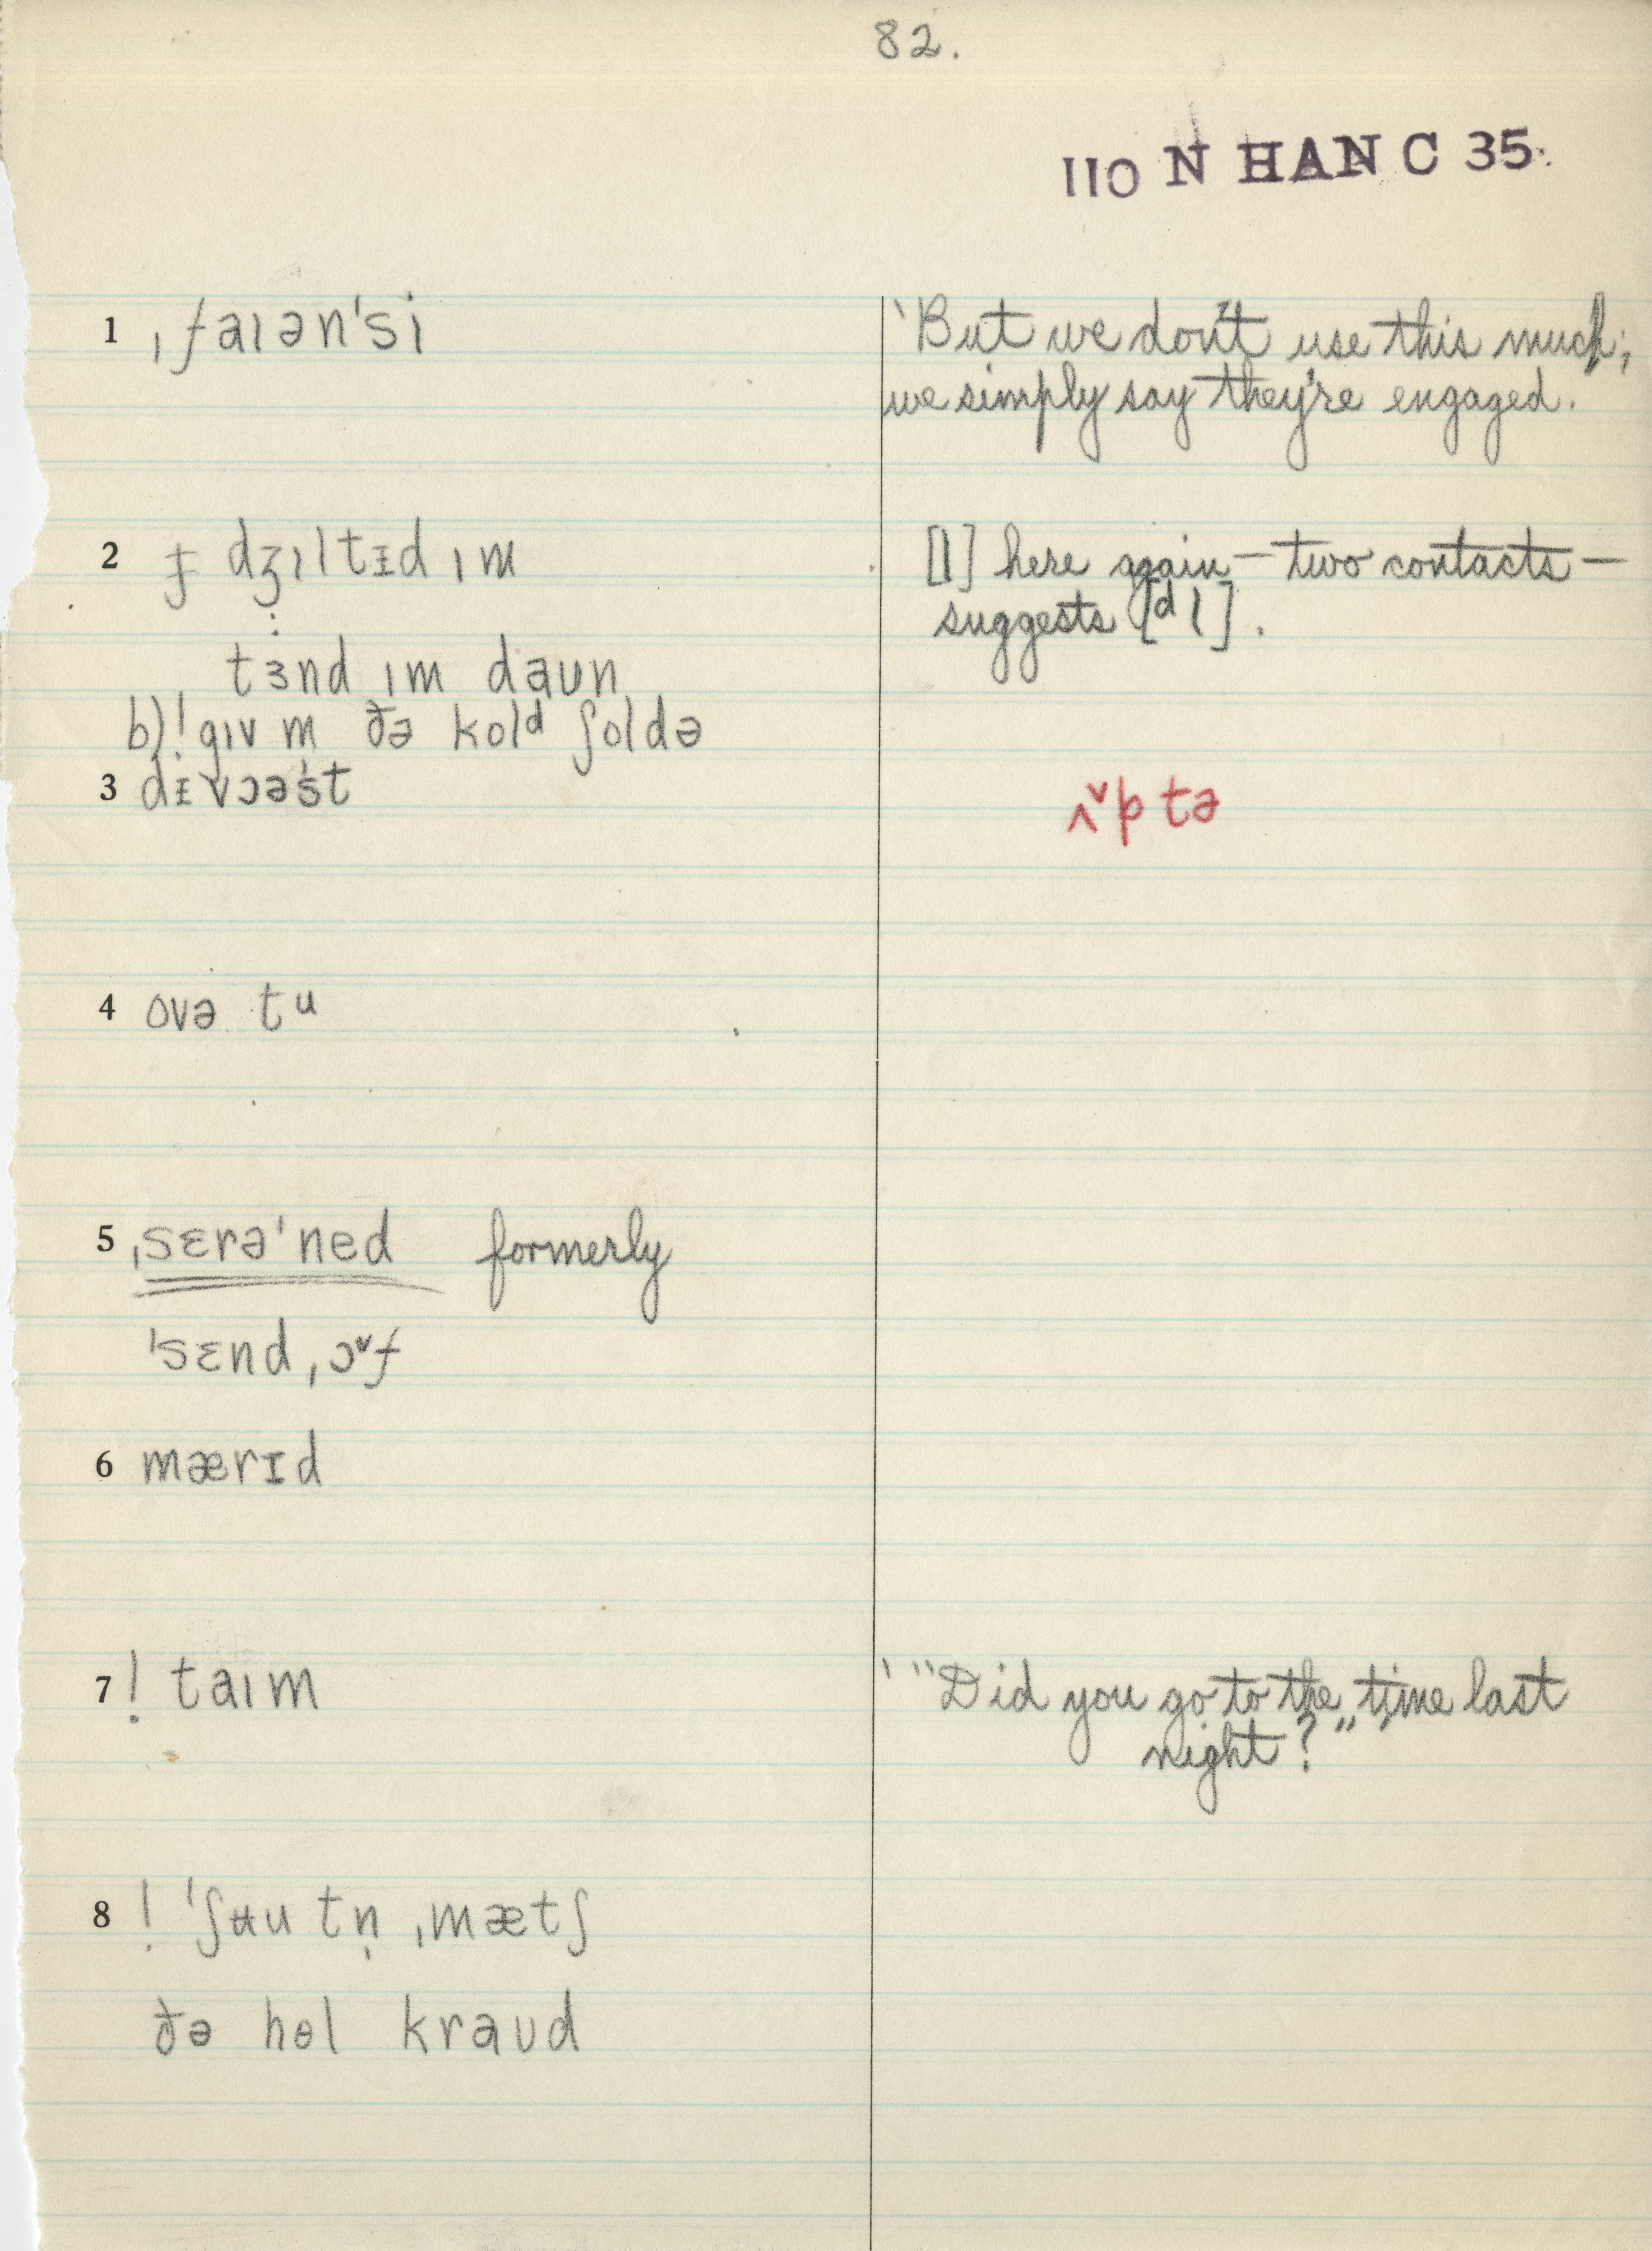 82.
110 N HAN C 35.
1 ˌfaɪən'si
'But we don't use this much;
we simply say they're engaged.
2 ɟ dʒɪltɪd ɪm
[l] here again — two contacts —
suggests [ᵈl].
:
tɜnd ɪm daʊn
b) ! gɪv m ðə kolᵈ ʃoldə
3 dɪvɔəst
ʌ˅p tə
4 ovə tᵘ
5 ˌsɛrə'ned formerly
'sɛnd ˌɔ˅f
6 mærɪd
7 ! taɪm
' "Did you go to the time last
night?"
8 ! 'ʃʉu tṇ ˌmætʃ
ðə hɵl kraʊd